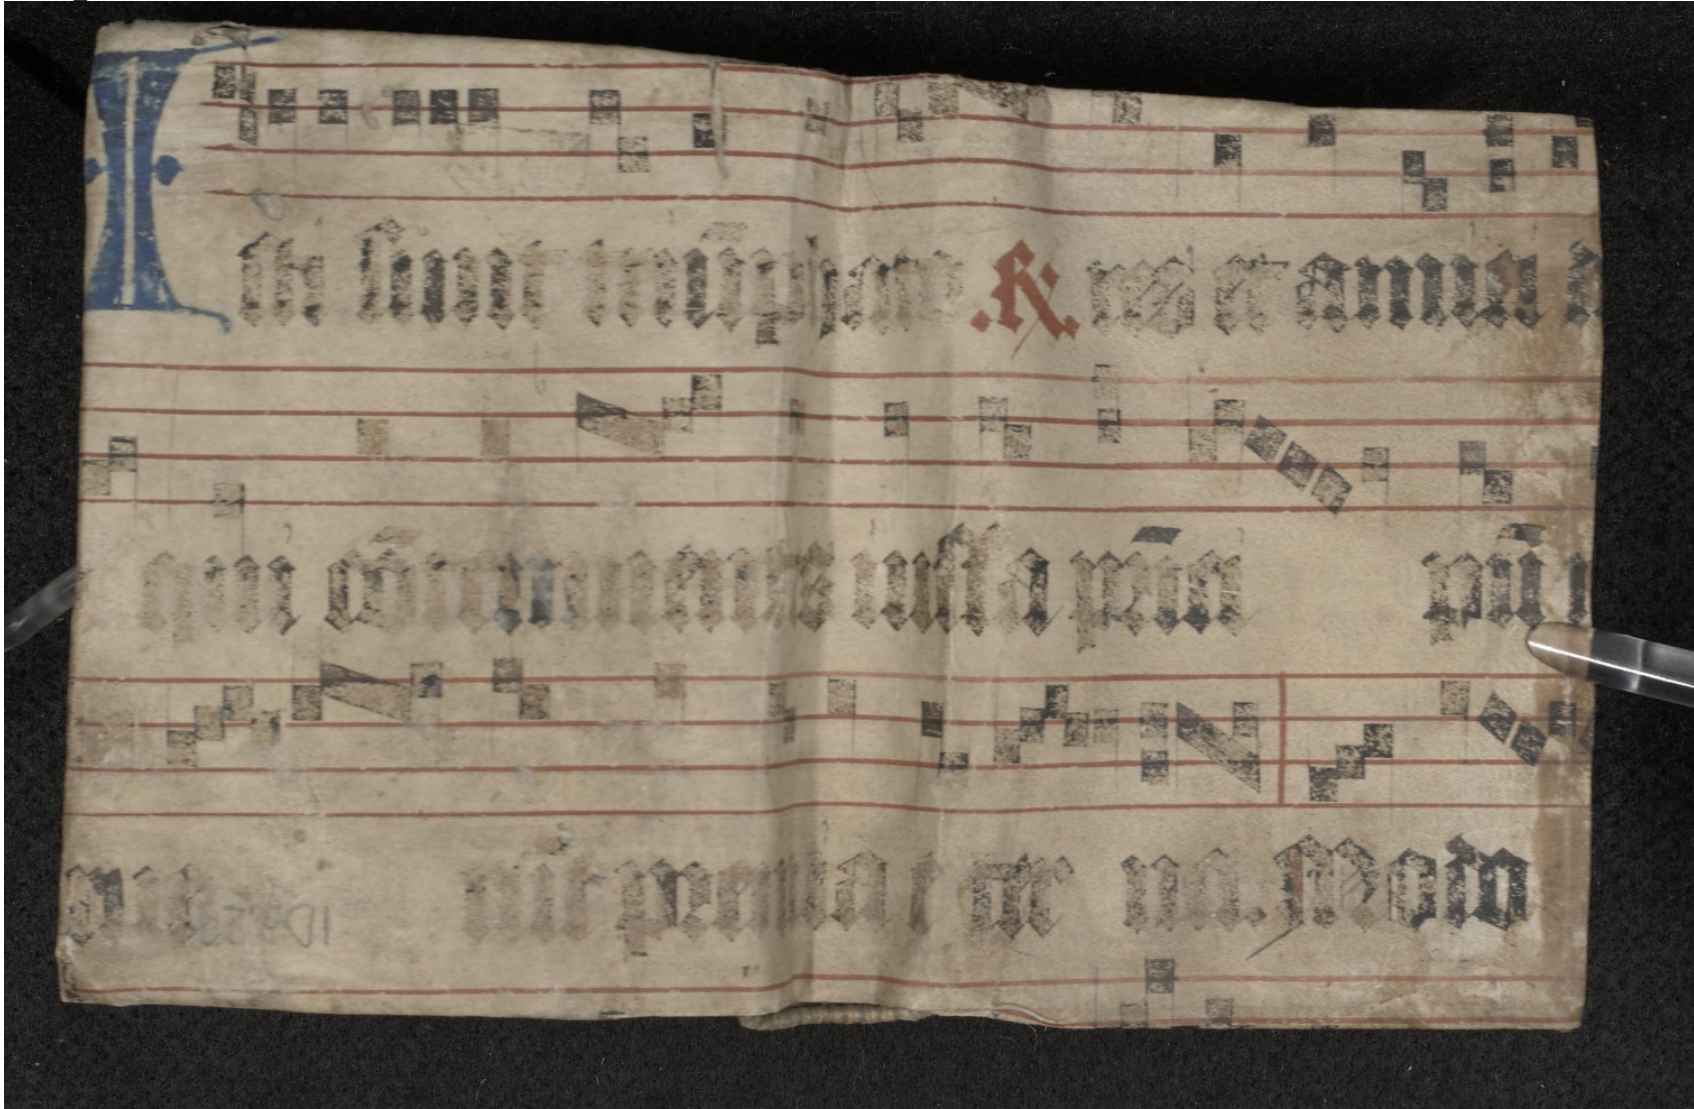 Isti sunt triūphato .R. res et amici
qui cōtempnentes iussa prīci pū
rūt premia e ter na. Modo